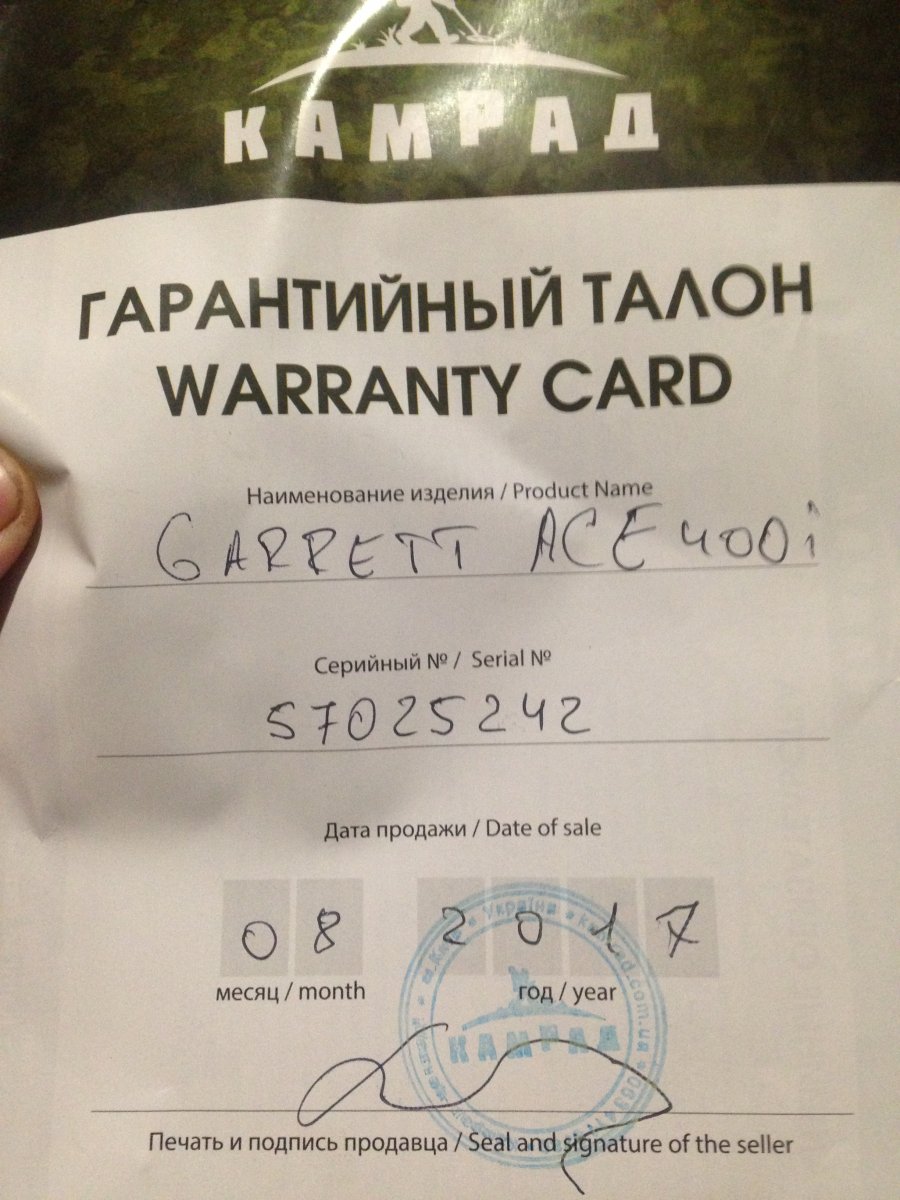 КАМРАД
ГАРАНТИЙНЫЙ ТАЛОН
WARRANTY CARD
Наименование изделия / Product Name
GARRETT ACE 400i
Серийный № / Serial №
57025242
Дата продажи / Date of sale
08 2017
месяц / month год / year
м.Київ • Україна • kamrad.com.ua
КАМРАД
Печать и подпись продавца / Seal and signature of the seller